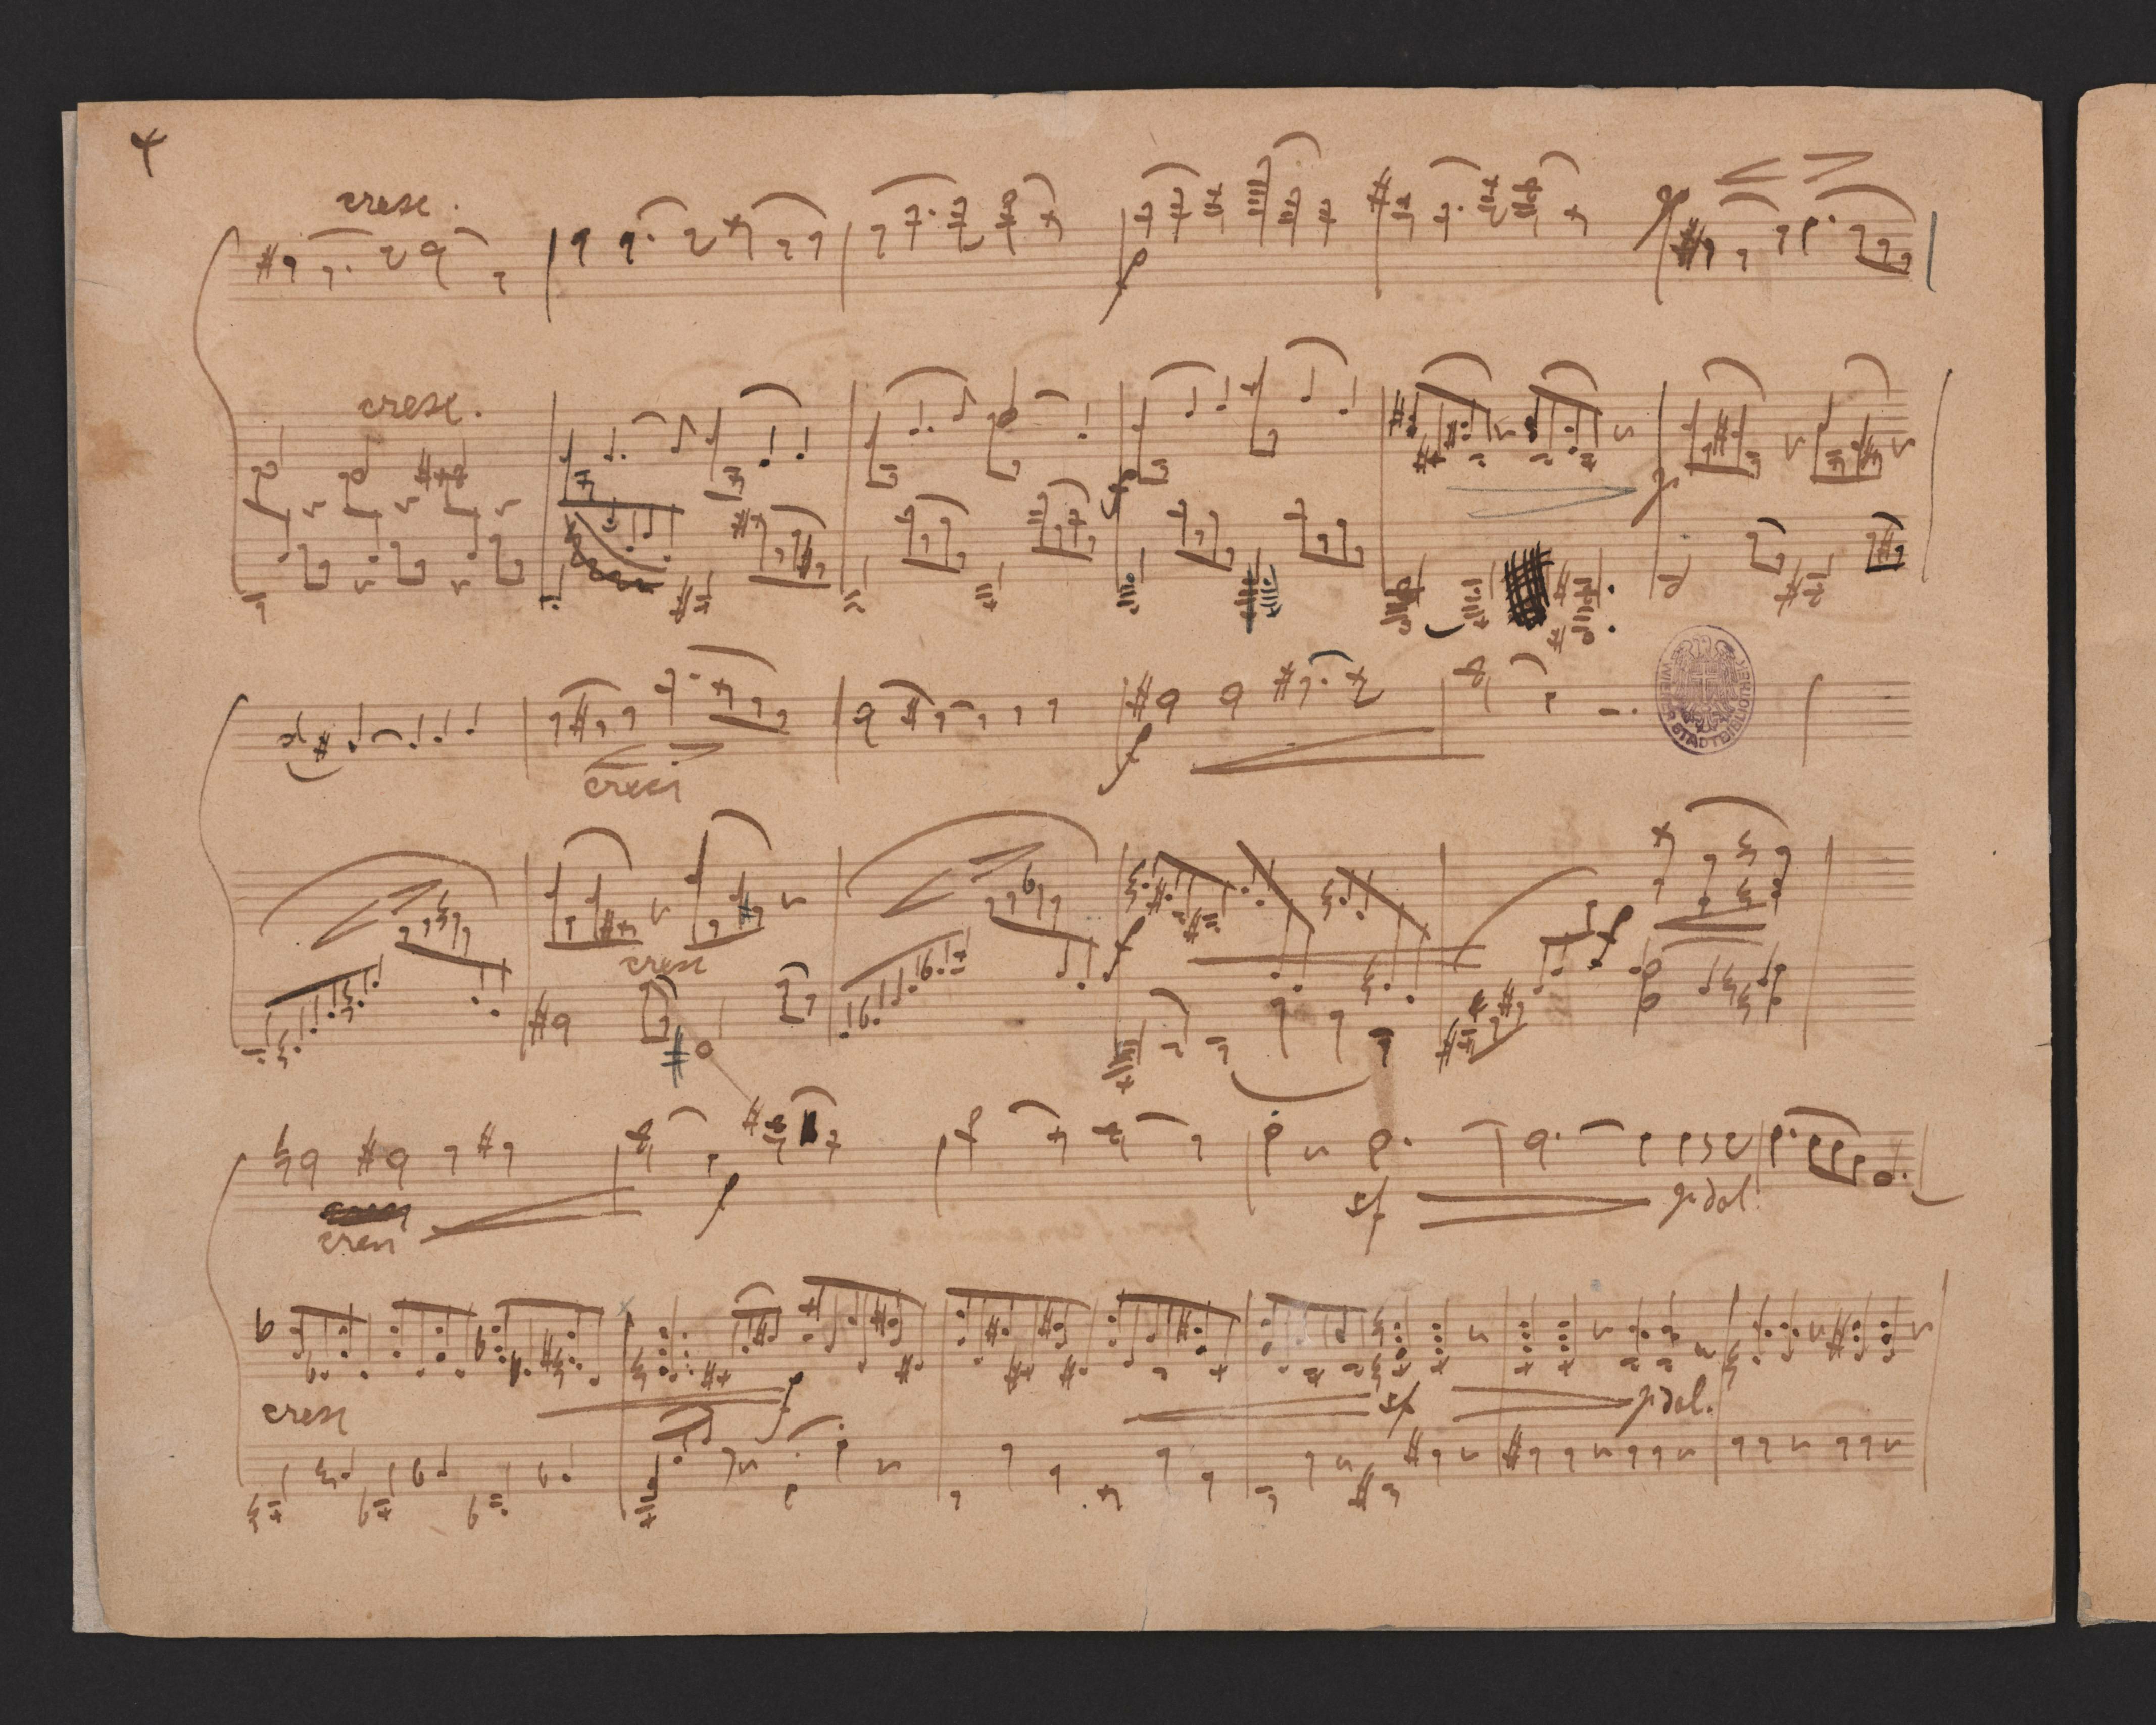 4
cresc.
p
f
cresc.
f
p
WIENER STADTBIBLIOTHEK
f
cresc
cresc
f
f
f
sf
p dol.
cresc
cresc
f
sf
p dol.